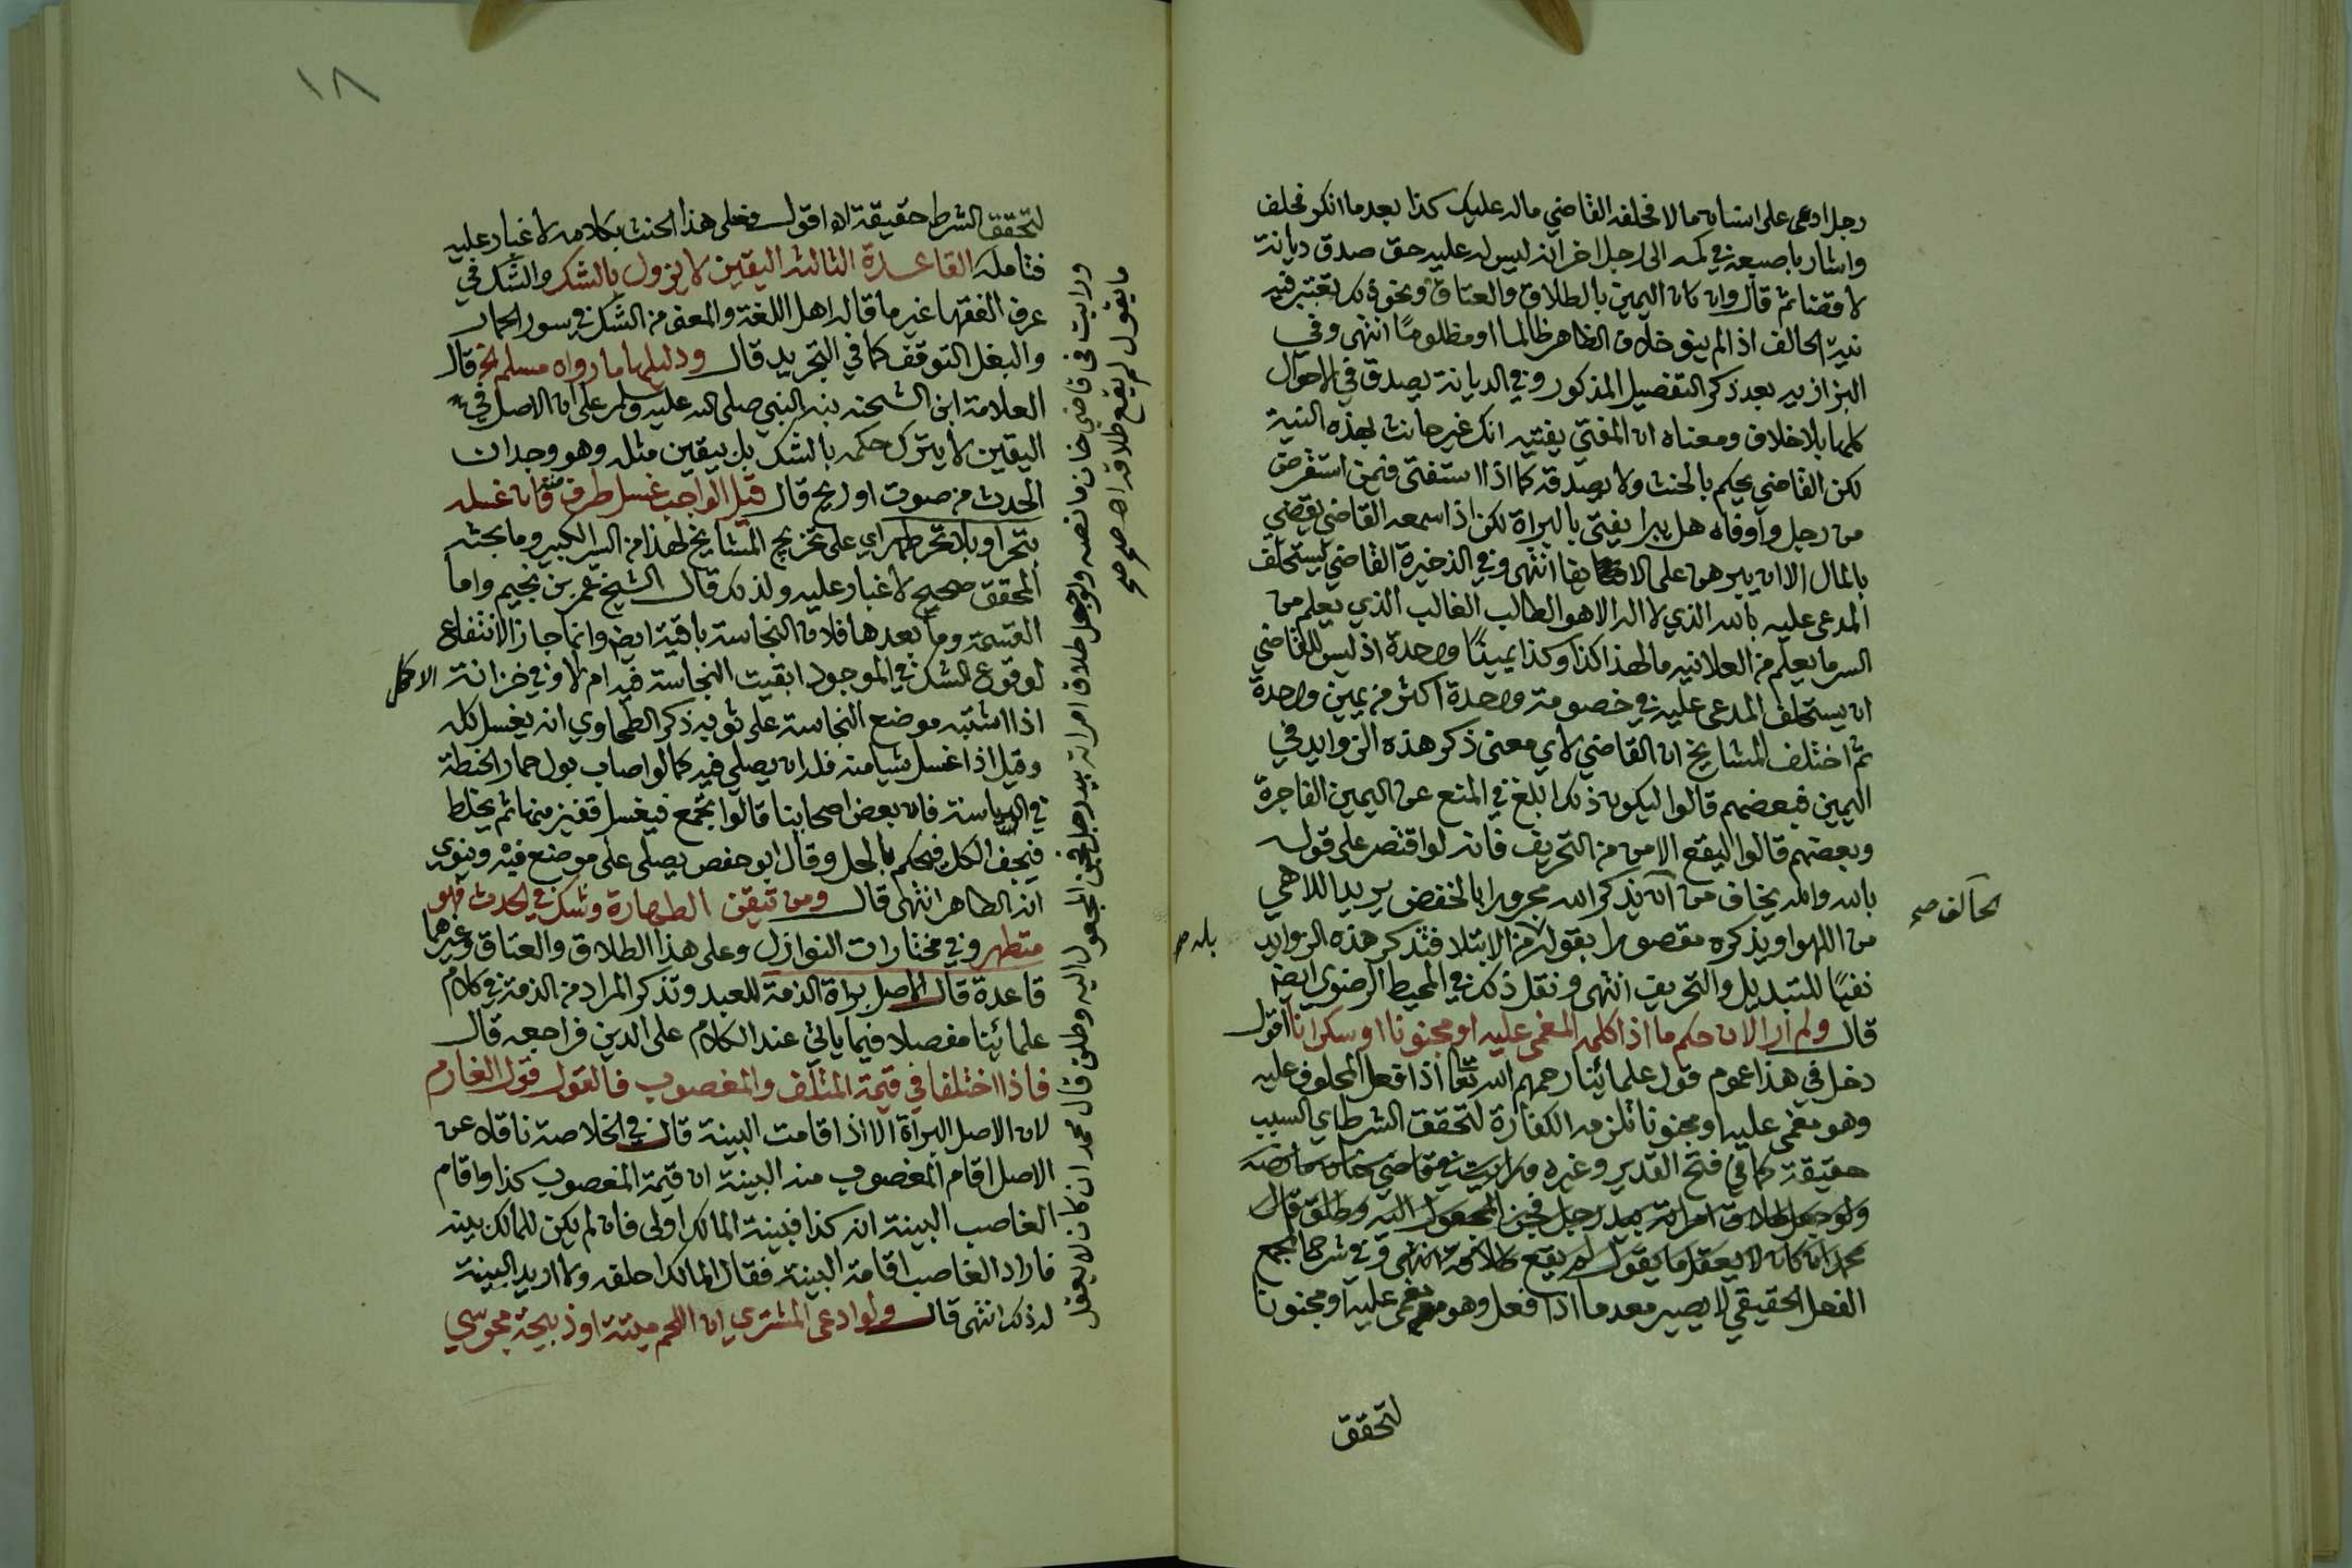 رجل ادعى على انسان مالا فحلفه القاضي ماله عليك كذا بعد ما انكر فحلف
واشار باصبعه في كمه الى رجل اخر انه ليس له عليه حق صدق ديانة
لا قضا ثم قال وان كان اليمين بالطلاق والعتاق ونحو ذلك تعتبر فيه
نية الحالف اذا لم ينو خلاف الظاهر ظالما او مظلومًا انتهى وفي
البزازيه بعد ذكر التفصيل المذكور وفي الديانة يصدق في الاحوال
كلها بلا خلاف ومعناه ان المفتي يفتيه انك غير حانث بهذه النية
لكن القاضي يحكم بالحنث ولا يصدقه كما اذا استفتى فيمن استقرض
من رجل واوفاه هل يبرا يفتى بالبراة لكن اذا سمعه القاضي يقضي
بالمال الا ان يبرهن على الايفا انتهى وفي الذخيرة القاضي يستحلف
المدعى عليه بالله الذي لا اله الا هو الطالب الغالب الذي يعلم من
السر ما يعلم من العلانيه ما لهذا كذا وكذا يمينًا واحدة اذ ليس للقاضي
ان يستحلف المدعى عليه في خصومة واحدة اكثر من يمين واحدة
ثم اختلف المشايخ ان القاضي لاي معنى ذكر هذه الزوايد في
اليمين فبعضهم قالوا ليكون ذلك ابلغ في المنع عن اليمين الفاجرة
وبعضهم قالوا ليقع الامن من التحريف فانه لو اقتصر على قوله
بالله والمه يخاف من انه يذكر الله مجرورا بالخفض يريد اللاهي
الحالف صح
من اللهو او يذكره مقصورا بقوله من الابتلا فتذكر هذه الزوايد
بله صح
نفيًا للتبديل والتحريف انتهى ونقل ذلك في المحيط الرضوي ايضا
قال ولم ار الان حكم ما اذا كلمه المغمى عليه او مجنونا او سكرانا اقول
دخل في هذا عموم قول علمائنا رحمهم الله تعا اذا فعل المحلوف عليه
وهو مغمى عليه او مجنونا تلزمه الكفارة لتحقق الشرط اي السبب
حقيقة كما في فتح القدير وغيره ورايت في قاضي خان ما نصه
ولو جعل طلاق امراته بيد رجل فجن المجعول اليه وطلق قال
محمد ان كان لا يعقل ما يقول لم يقع طلاقه انتهى وفي شرح المجمع
الفعل الحقيقي لا يصير معدما اذا فعل وهو مغمى عليه او مجنونا
لتحقق
١٨
لتحقق الشرط حقيقة اه اقول فعلى هذا الحنث بكلامه لا غبار عليه
فتامله القاعدة الثالثه اليقين لا يزول بالشك والشك في
عرف الفقها غير ما قاله اهل اللغة والمعنى من الشك في سور الحمار
والبغل التوقف كما في التجريد قال ودليلها ما رواه مسلم الخ قال
العلامة ابن الشحنه بنه النبي صلى الله عليه وسلم على ان الاصل في
اليقين لا يترك حكمه بالشك بل بيقين مثله وهو وجدان
الحدث من صوت او ريح قال قيل الواجب غسل طرف منه فان غسله
بتحر او بلا تحر طهر اي على تخريج المشايخ لهذا من السير الكبير وما بحثه
المحقق صحيح لا غبار عليه ولذلك قال الشيخ عمر بن نجيم واما
القسمة وما بعدها فلان النجاسة باقية ايضا وانما جاز الانتفاع
لوقوع الشك في الموجود ابقيت النجاسة فيه ام لا وفي خزانة الاكمل
اذا اشتبه موضع النجاسة على ثوبه ذكر الطحاوي انه يغسل كله
وقيل اذا غسل شيا منه فله ان يصلي فيه كما لو اصاب بول حمار الحنطة
في الدياسة فان بعض اصحابنا قالوا يجمع فيغسل قفيز منها ثم يخلط
فيجف الكل فيحكم بالحل وقال ابو حفص يصلي على موضع فيه وينوي
انه الطاهر انتهى قال ومن تيقن الطهارة وشك في الحدث فهو
متطهر وفي مختارات النوازل وعلى هذا الطلاق والعتاق وغيرهما
قاعدة قال الاصل براة الذمة للعبد وتذكر المراد من الذمة في كلام
علمائنا مفصلا فيما ياتي عند الكلام على الدين فراجعه قال
فاذا اختلفا في قيمة المتلف والمغصوب فالقول قول الغارم
لان الاصل البراة الا اذا قامت البينة قال في الخلاصة ناقلا عن
الاصل اقام المغصوب منه البينة ان قيمة المغصوب كذا واقام
الغاصب البينة انه كذا فبينة المالك اولى فان لم يكن للمالك بينه
فاراد الغاصب اقامة البينة فقال المالك احلفه ولا اريد البينة
له ذلك انتهى قال ولو ادعى المشتري ان اللحم ميتة او ذبيحة مجوسي
ورايت في قاضي خان ما نصه ولو جعل طلاق امراته بيد رجل فجن المجعول اليه وطلق قال محمد ان كان لا يعقل
ما يقول لم يقع طلاقه اه صح صح